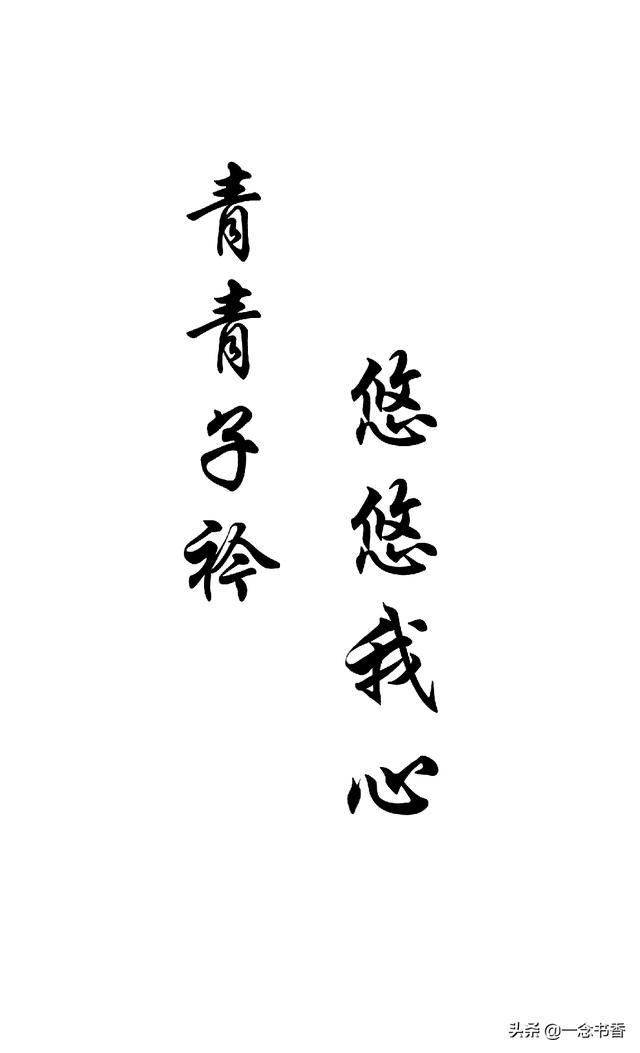 青青子衿
悠悠我心
头条 @一念书香